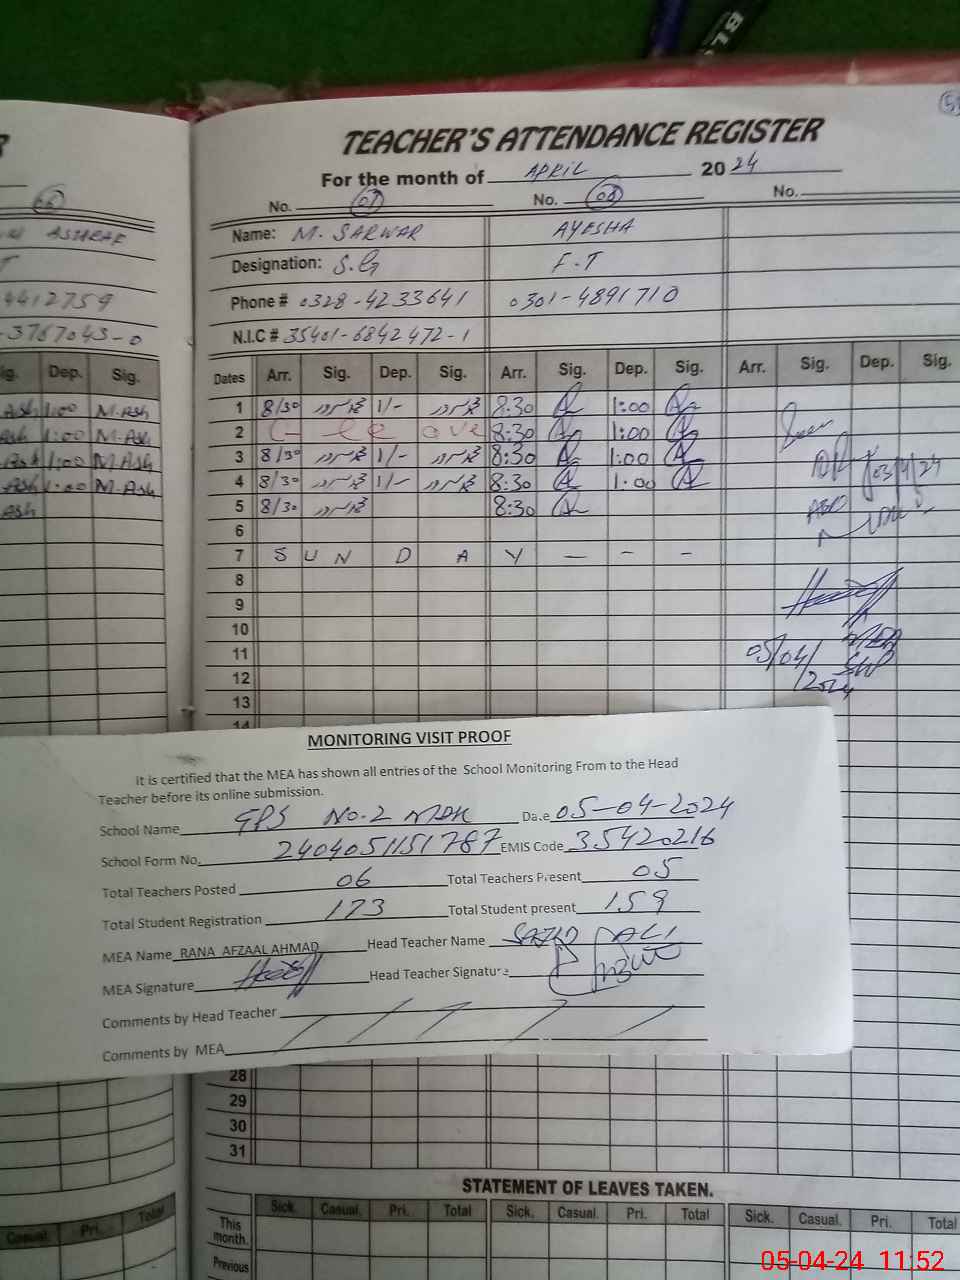 TEACHER'S ATTENDANCE REGISTER
For the month of APRIL 2024
No. 07 No. 08 No.
Name: M. SARWAR AYESHA
Designation: S.G F.T
Phone # 0328-4233641 0301-4891710
N.I.C # 35401-6842472-1
ASHRAF
4412759
-3767043-0
Sig. Dep. Sig.
Dates Arr. Sig. Dep. Sig. Arr. Sig. Dep. Sig. Arr. Sig. Dep. Sig.
Ash 1:00 M.Ash
1 8/30 محمد سرور 1/- محمد سرور 8:30 1:00
Ash 1:00 M.Ash
2 C- leave 8:30 1:00 Seen
Ash 1:00 M.Ash
3 8/30 محمد سرور 1/- محمد سرور 8:30 1:00 03/4/24
Ash 1:00 M.Ash
4 8/30 محمد سرور 1/- محمد سرور 8:30 1:00
Ash
5 8/30 محمد سرور 8:30
6
7 S U N D A Y — - -
8
9
10
11 05/04/2024 MEA
12
13
14
MONITORING VISIT PROOF
It is certified that the MEA has shown all entries of the School Monitoring From to the Head
Teacher before its online submission.
School Name GPS No.2 MDK Date 05-04-2024
School Form No. 2404051151787 EMIS Code 35420216
Total Teachers Posted 06 Total Teachers Present 05
Total Student Registration 173 Total Student present 159
MEA Name RANA AFZAAL AHMAD Head Teacher Name SAJID ALI
MEA Signature Head Teacher Signature
Comments by Head Teacher
Comments by MEA
28
29
30
31
STATEMENT OF LEAVES TAKEN.
Casual. Pri. Total
Sick. Casual. Pri. Total Sick. Casual. Pri. Total Sick. Casual. Pri. Total
This month.
Previous
05-04-24 11:52